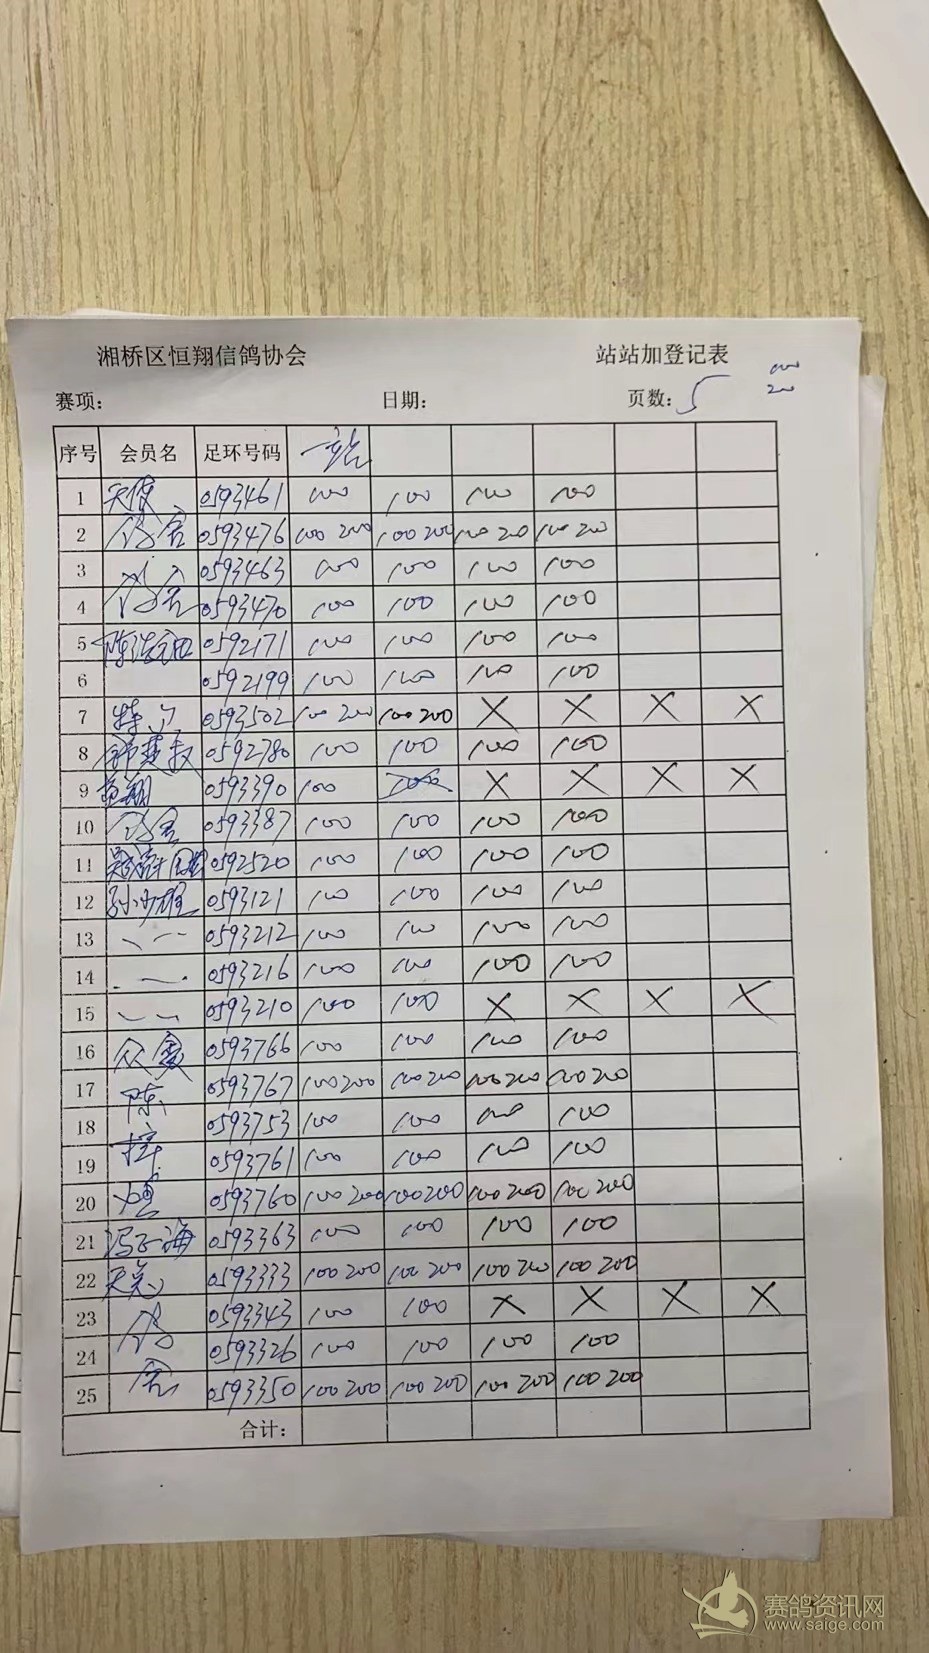 湘桥区恒翔信鸽协会 站站加登记表
赛项： 日期： 页数：5 100
200
序号 会员名 足环号码 一站
1 天使 0593461 100 100 100 100
2 鸽舍 0593476 100 200 100 200 100 200 100 200
3 0593463 100 100 100 100
4 鸽舍 0593470 100 100 100 100
5 0592171 100 100 100 100
6 0592199 100 100 100 100
7 0593502 100 200 100 200 X X X X
8 0592780 100 100 100 100
9 翔 0593390 100 X X X X
10 鸽舍 0593387 100 100 100 100
11 0592520 100 100 100 100
12 孙少雄 0593121 100 100 100 100
13 0593212 100 100 100 100
14 0593216 100 100 100 100
15 0593210 100 100 X X X X
16 众鑫 0593766 100 100 100 100
17 陈 0593767 100 200 100 200 100 200 100 200
18 0593753 100 100 100 100
19 梓 0593761 100 100 100 100
20 0593760 100 200 100 200 100 200 100 200
21 海 0593363 100 100 100 100
22 0593333 100 200 100 200 100 200 100 200
23 鸽 0593343 100 100 X X X X
24 0593326 100 100 100 100
25 舍 0593350 100 200 100 200 100 200 100 200
合计：
赛鸽资讯网
www.saige.com